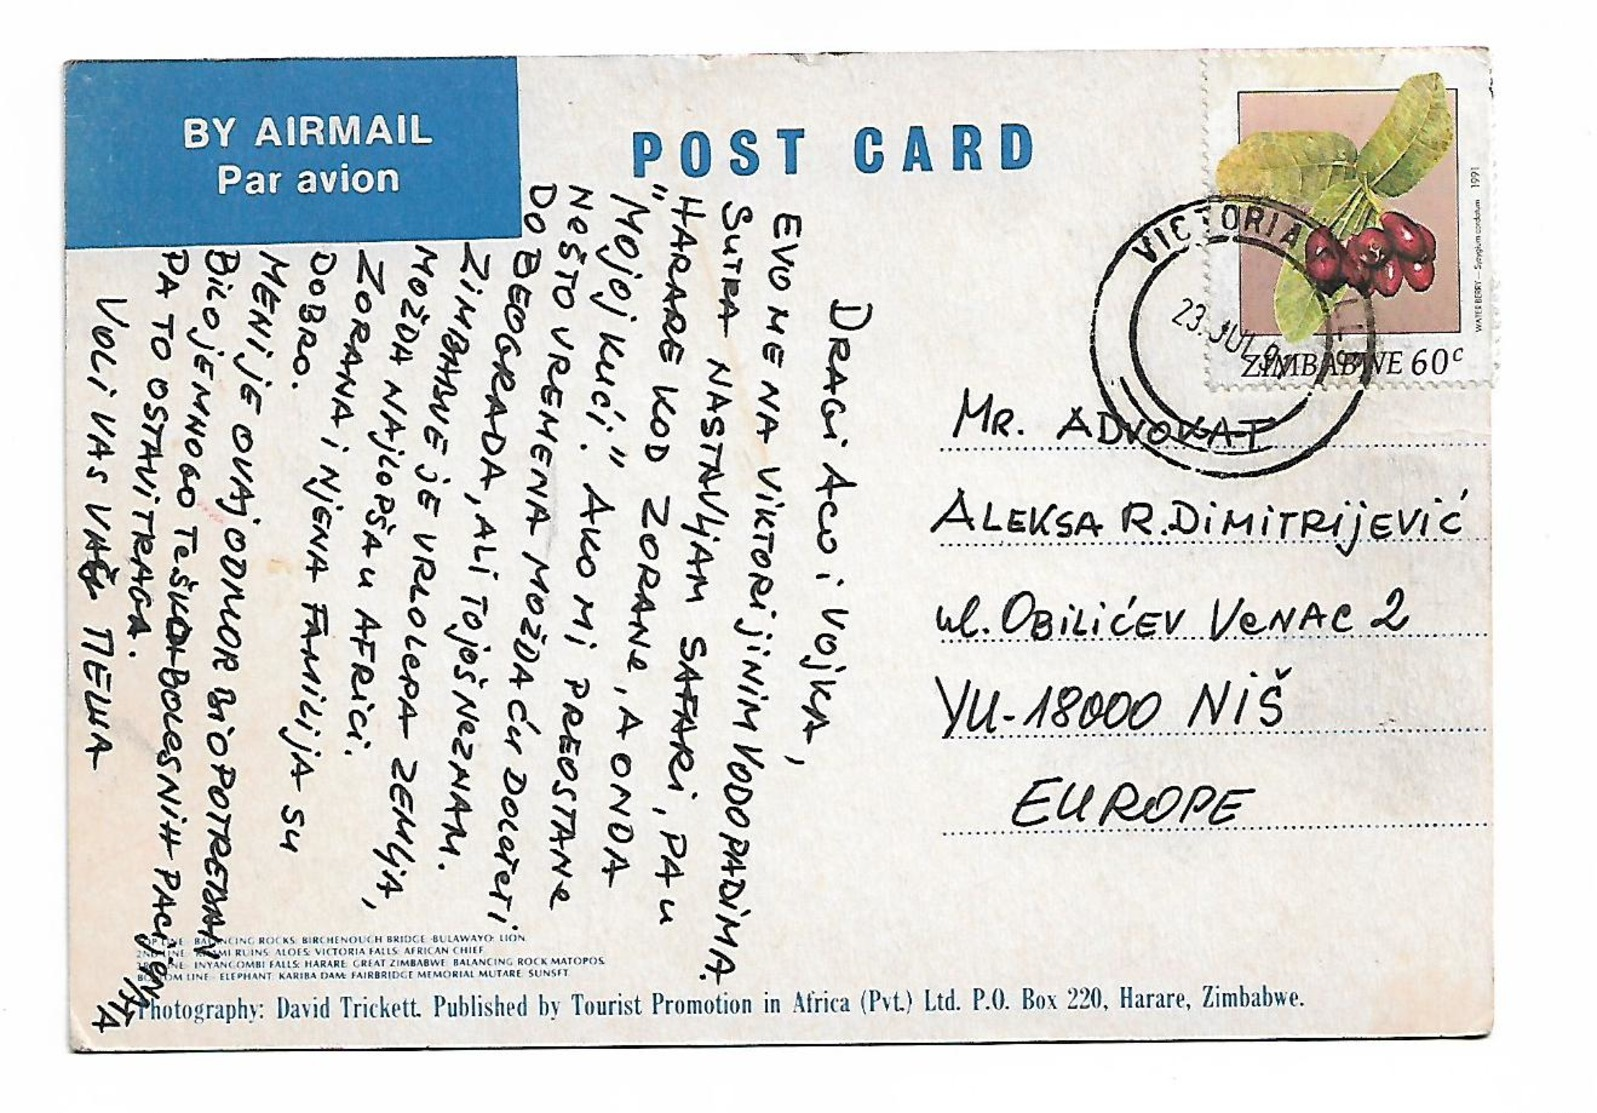 BY AIRMAIL
Par avion
POST CARD
WATER BERRY — Syzygium cordatum 1991
ZIMBABWE 60c
VICTORIA
23. JUL
DRAGI ACO i VOJKA,
EVO ME NA VIKTORIJINIM VODOPADIMA.
SUTRA NASTAVLJAM SAFARI, PA U
"HARARE KOD ZORANE, A ONDA
"MOJOJ KUĆI." AKO MI PREOSTANE
NEŠTO VREMENA MOŽDA ĆU DOLETETI
DO BEOGRADA, ALI TO JOŠ NE ZNAM.
ZIMBABWE JE VRLO LEPA ZEMLJA,
MOŽDA NAJLEPŠA U AFRICI.
ZORANA i NJENA FAMILIJA SU
DOBRO.
MENI JE OVAJ ODMOR BIO POTREBAN
BILO JE MNOGO TEŠKO BOLESNIH PACIJENATA
PA TO OSTAVI TRAGA.
VOLI VAS VAŠA
MR. ADVOKAT
ALEKSA R. DIMITRIJEVIĆ
ul. OBILIĆEV VENAC 2
YU-18000 NIŠ
EUROPE
TOP LINE: BALANCING ROCKS: BIRCHENOUGH BRIDGE: BULAWAYO: LION.
2ND LINE: KHAMI RUINS: ALOES: VICTORIA FALLS: AFRICAN CHIEF.
3RD LINE: INYANGOMBI FALLS: HARARE: GREAT ZIMBABWE: BALANCING ROCK MATOPOS.
BOTTOM LINE: ELEPHANT: KARIBA DAM: FAIRBRIDGE MEMORIAL MUTARE: SUNSET.
Photography: David Trickett. Published by Tourist Promotion in Africa (Pvt.) Ltd. P.O. Box 220, Harare, Zimbabwe.